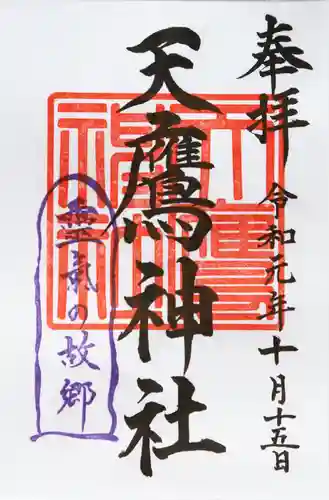 奉拝
令和元年十月十五日
天鷹神社
霊氣の故郷